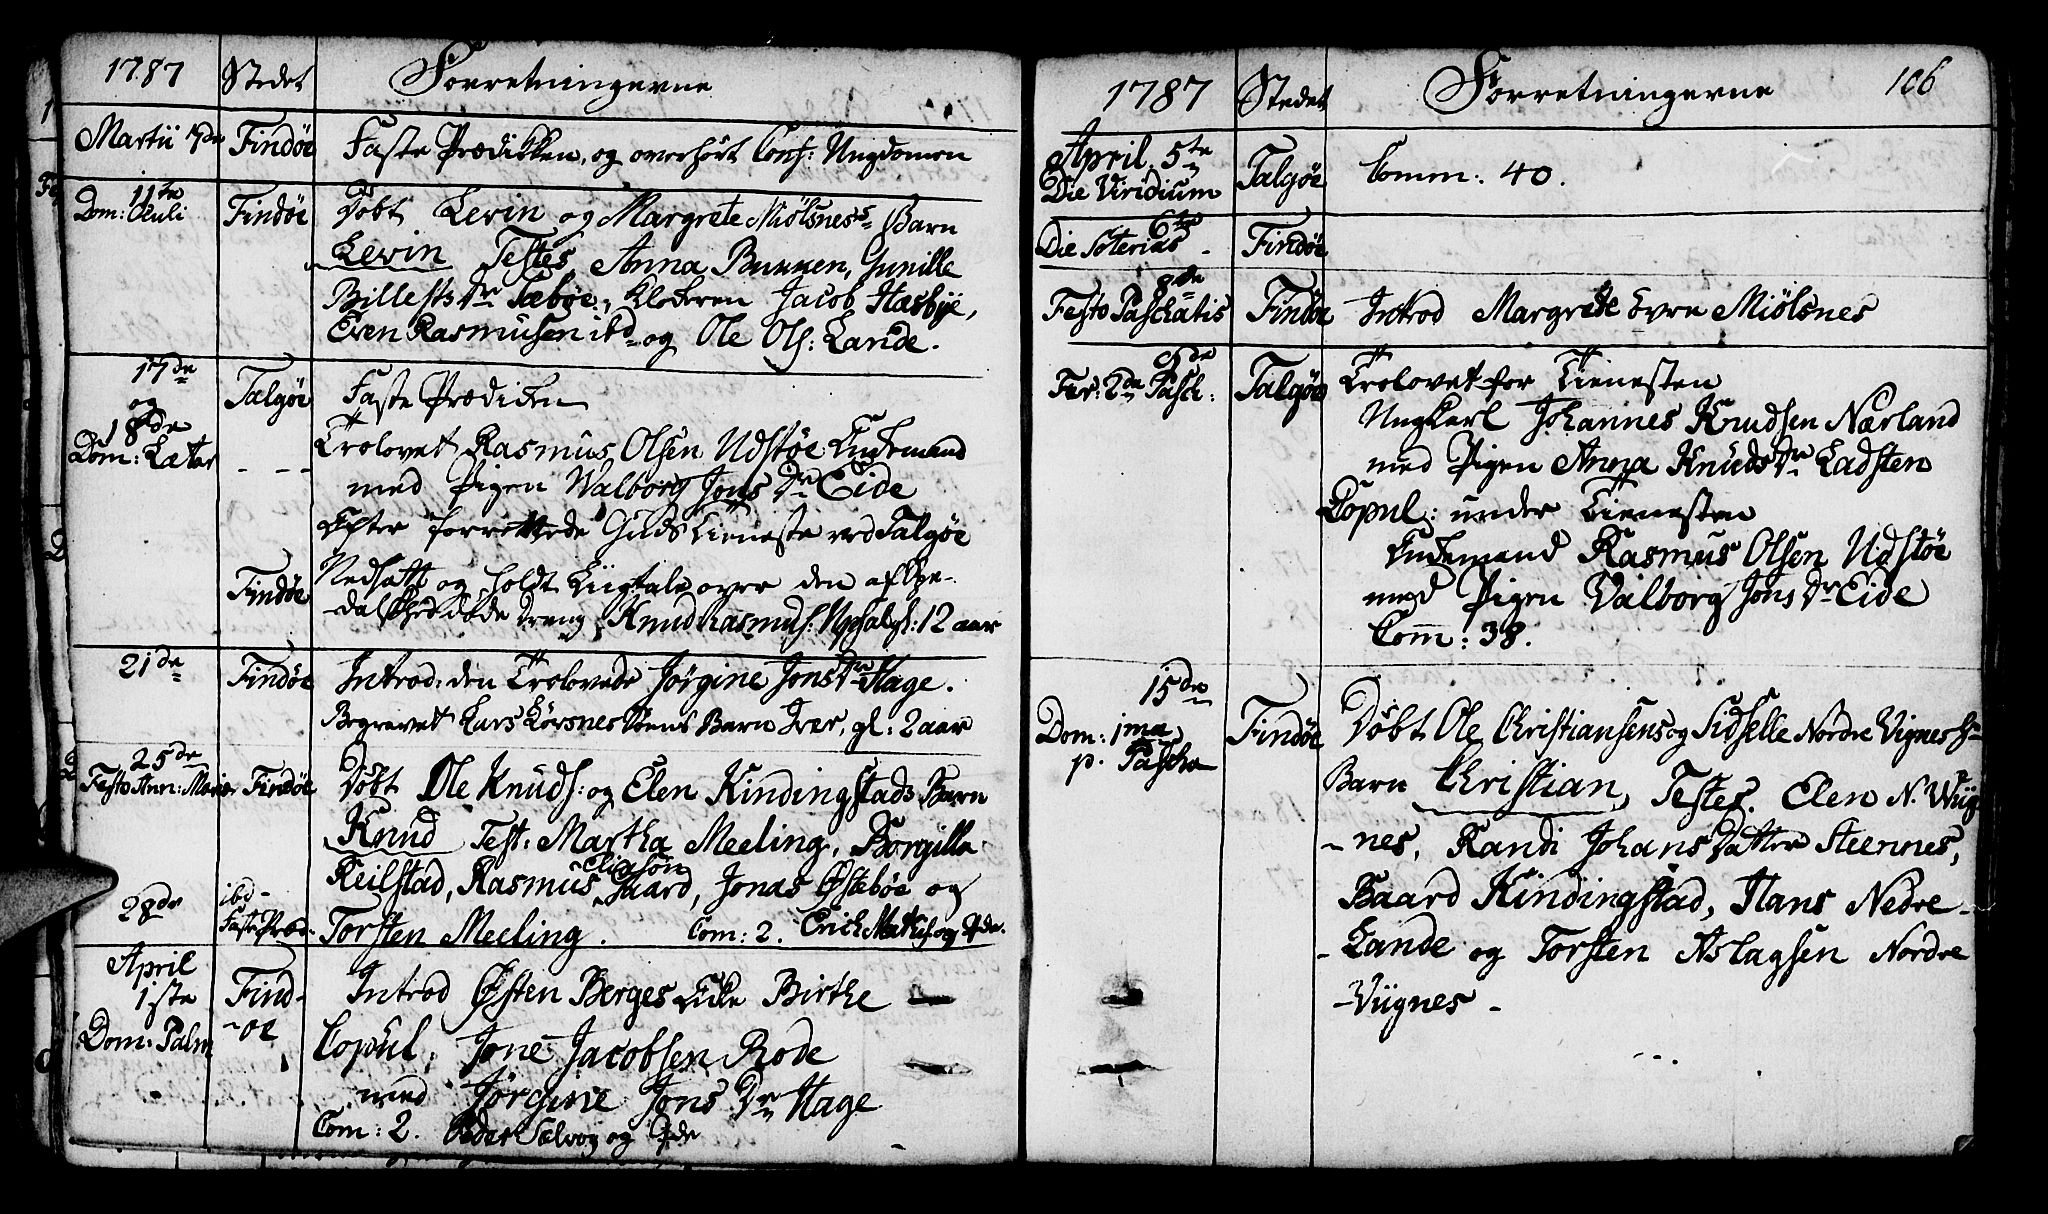 1787 Stedet Forretningerne
Martii 7de Findöe Faste Prædikken, og overhört Conf: Ungdomen
11te
Dom: Oculi Findöe Döbt Levin og Margrete Miölsnes Barn
Levin Testes Anna Bunken, Gunille
Billests Dr Sæbøe, Klokkeren Jacob Hæsbye,
Even Rasmusen ibd og Ole Ols: Lande.
17de Talgöe Faste Prædiken
og
18de Trolovet Rasmus Olsen Udstöe Enkemand
Dom: Lætar med Pigen Walborg Jons Dr Eide
Efter forrettede Guds Tieneste ved Talgöe
Findöe Nedsatt og holdt Liigtale over den
döde Dreng Knud Rasmus: gl: 12 aar
21de Findöe Introd: den Trolovede Jörgine Jons Dr Hage.
Begravet Lars Barn Iver, gl: 2 aar
25de
Festo Ann: Mariæ Findöe Döbt Ole Knuds: og Elen Kindingstads Barn
Knud Test: Martha Meeling, Borgilla
Reilstad, Rasmus Eliasøn Gaard, Jonas Østebøe og
28de ibd Faste Præd- Torsten Meeling. Com: 2. Erich
April
1ste Find- Introd Østen Berges Enke Birthe
Dom: Palm -öe Copul: Jone Jacobsen Rode
med Jörgine Jons Dr Hage
Com: 2. Peder og
1787 Stedet Forretningerne 106
April 5te
Die Viridium Talgöe Comm: 40.
6te
Die Soterias Findöe
8de
Festo Paschatis Findöe Introd Margrete övre Miölsnes
9de
Fer: 2da Pasch: Talgöe Trolovet for Tienesten
Ungkarl Johannes Knudsen Nærland
med Pigen Anna Knuds Dr Ladsten
Copul: under Tienesten
Enkemand Rasmus Olsen Udstöe
med Pigen Valborg Jons Dr Eide
Com: 38.
15de
Dom: 1ma Findöe Döbt Ole Christiansens og Sidselle Nordre Vignes
p. Pascha Barn Christian, Testes. Elen N. Wiig
-nes, Randi Johans Datter Steennes,
Baard Kindingstad, Hans Nedre-
-Lande og Torsten Aslagsen Nordre
-Viignes-